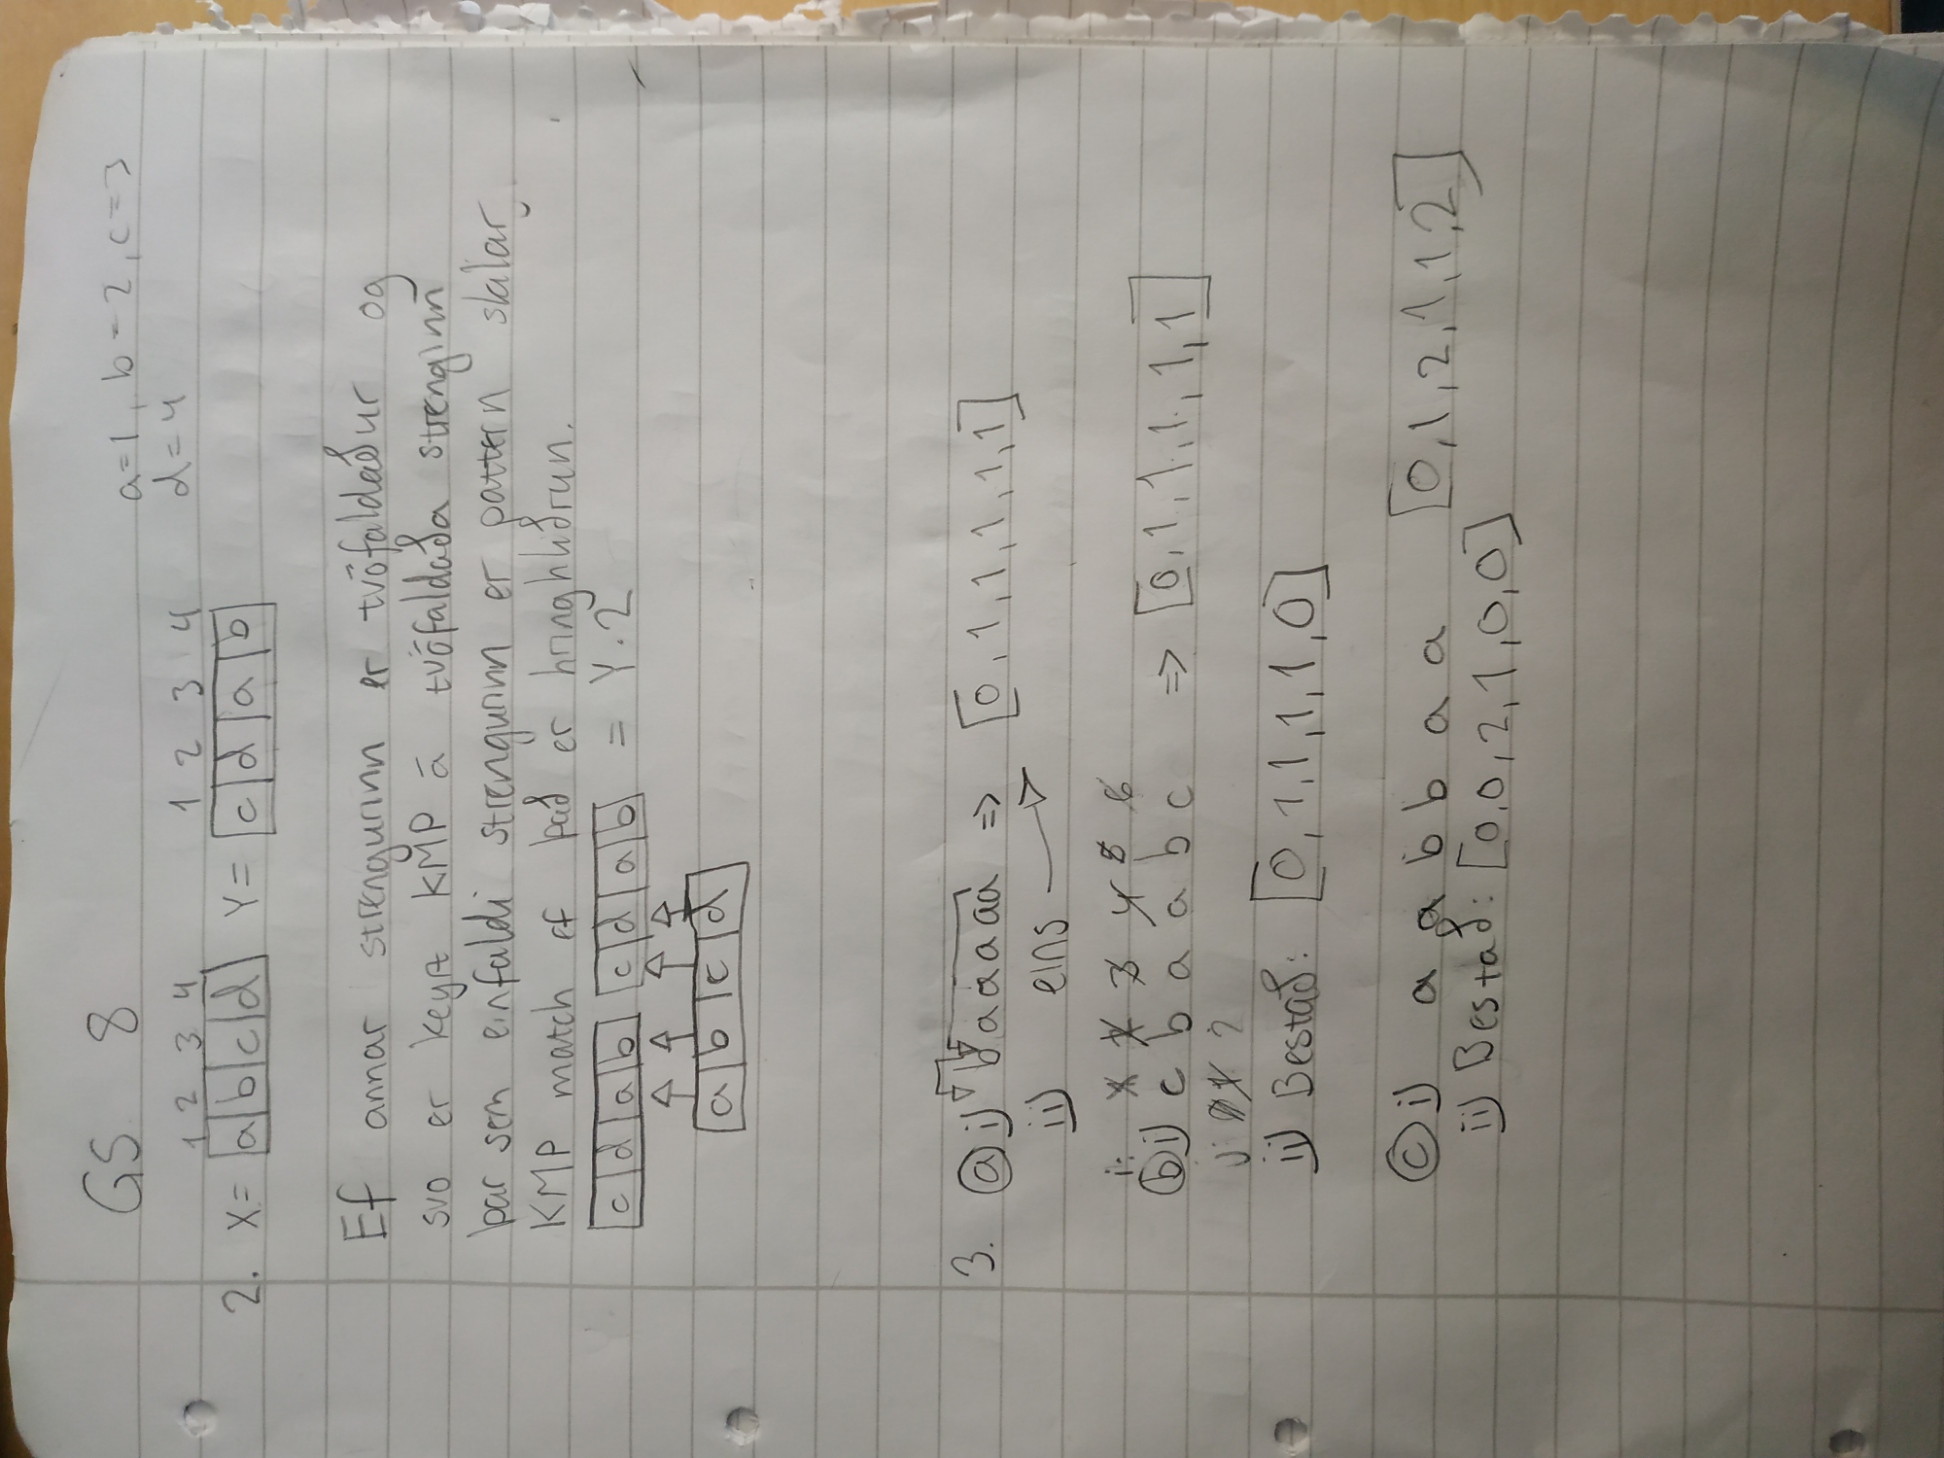 GS 8
a=1, b=2, c=3
d=4
1 2 3 4 1 2 3 4
2. X= a b c d Y= c d a b
Ef annar strengurinn er tvöfaldaður og
svo er keyrt KMP á tvöfaldaða strenginn
þar sem einfaldi strengurinn er pattern skilar
KMP match ef það er hringhliðrun.
c d a b c d a b = Y·2
a b c d
3. a i) baaaaa => [0,1,1,1,1,1]
ii) eins
i: 1 2 3 4 5 6
b i) c b a a b c => [0,1,1,1,1,1]
j: 0 1 2
ii) Bestað: [0,1,1,1,1,0]
c i) a a b b a a [0,1,2,1,1,2]
ii) Bestað: [0,0,2,1,0,0]